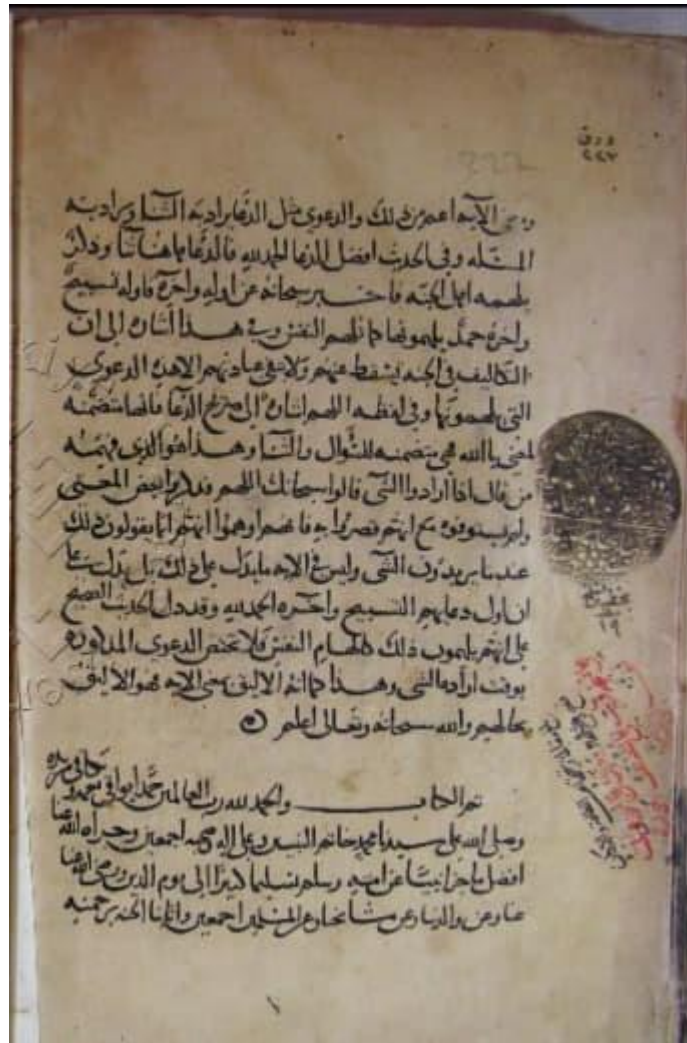 ورق
٢٢٧
ومعنى الايه اعم من ذلك والدعوى مثل الدعا يراد به الثنا ويراد به
المسئله وفي الحديث افضل الدعا الحمد لله فالدعا هاهنا ثنا وذكر
يلهمه اهل الجنه فاخبر سبحانه عن اوله واخره فاوله تسبيح
واخره حمد يلهمونها كما تلهم النفس وفي هذا اشاره الى ان
التكاليف في الجنه يسقط عنهم ولا تبقى عبادتهم الا هذه الدعوى
التي يلهمونها وفي لفظه اللهم اشارة الى صريح الدعا فانها متضمنه
لمعنى يا الله فهي متضمنه للسؤال والثنا وهذا هو الذي فهمه
من قال اذا ارادوا الشي قالوا سبحانك اللهم فذكروا بعض المعنى
ولم يستوفوه مع انهم قصروا به فانهم اوهموا انهم انما يقولون ذلك
عند ما يريدون الشي وليس في الايه ما يدل على ذلك بل يدل على
ان اول دعايهم التسبيح واخره الحمد لله وقد دل الحديث الصحيح
على انهم يلهمون ذلك كالهام النفس فلا تختص الدعوى المذكوره
بوقت اراده الشي وهذا كما انه الاليق بمعنى الايه فهو الاليق
بحالهم والله سبحانه وتعالى اعلم
تم الكتاب والحمد لله رب العالمين حمدا يوافي نعمه
وصلى الله على سيدنا محمد خاتم النبيين وعلى اله وصحبه اجمعين وجزاه الله عنا
افضل ما جزا نبيا عن امته وسلم تسليما كثيرا الى يوم الدين ورضي الله عنا
وعن والدينا وعن مشايخنا وعن المسلمين اجمعين واثابنا الجنه برحمته